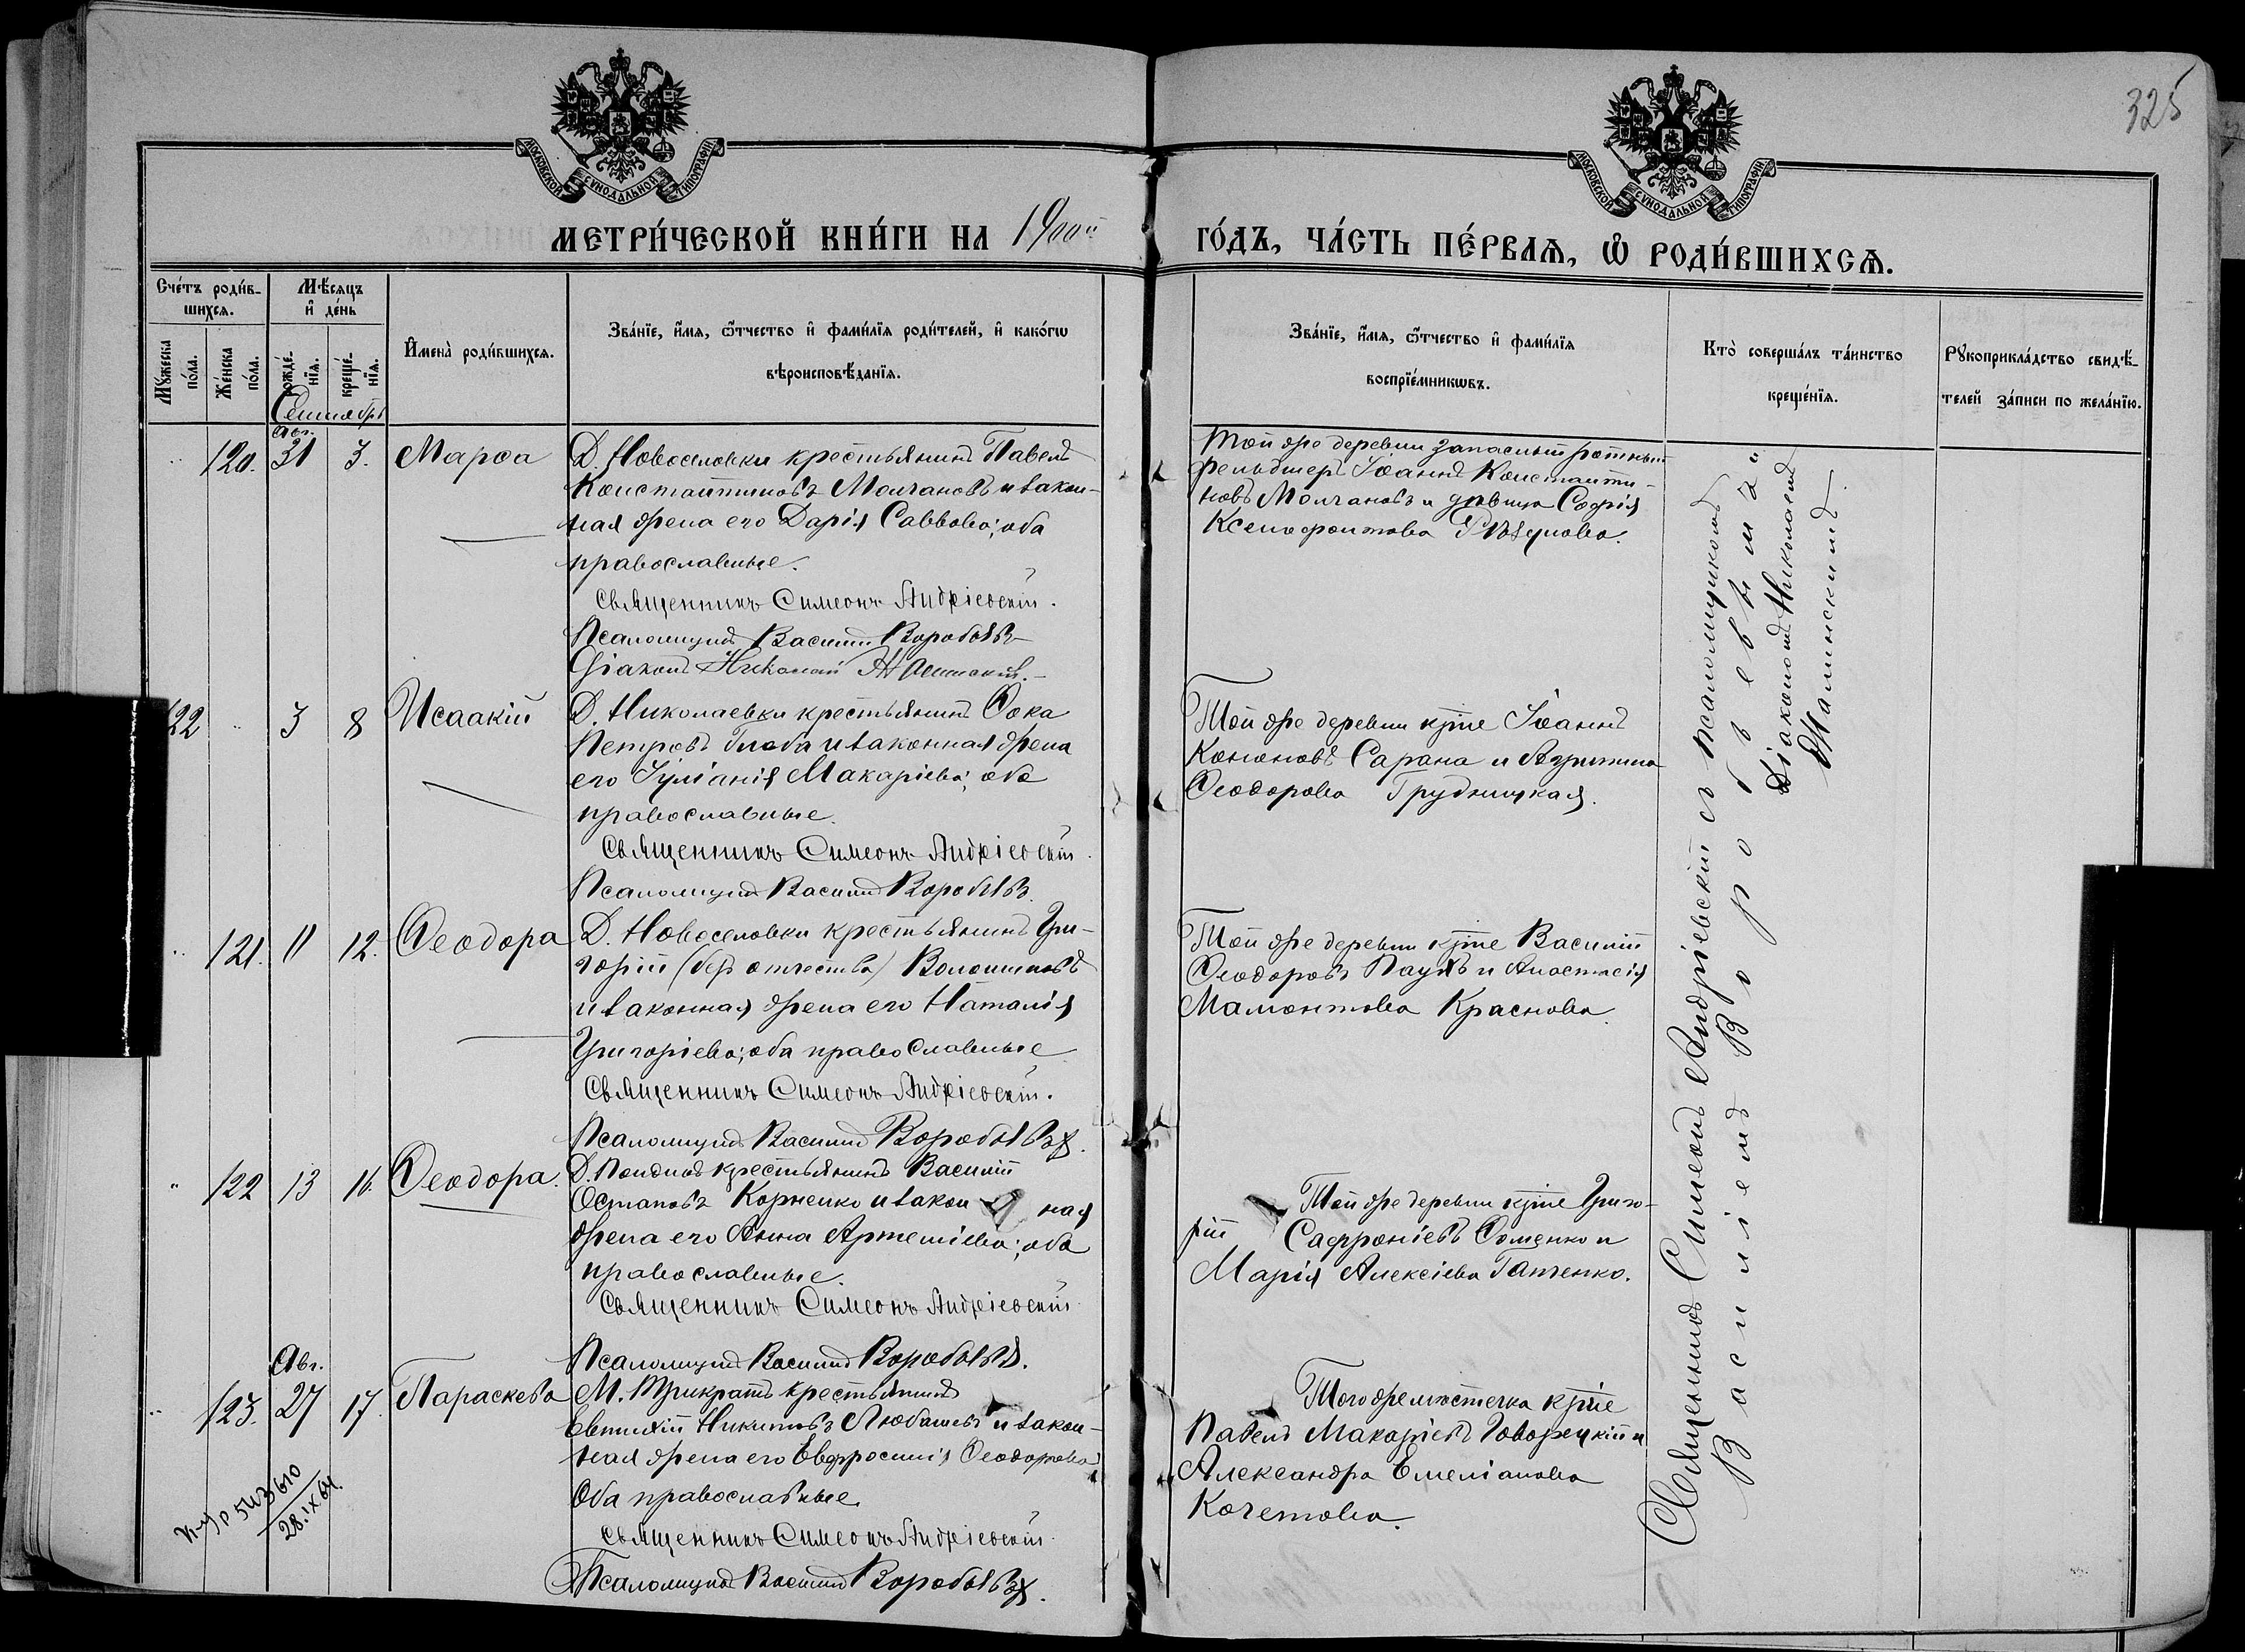 325
МОСКОВСКОЙ СѴНОДАЛЬНОЙ ТИПОГРАФІИ
МОСКОВСКОЙ СѴНОДАЛЬНОЙ ТИПОГРАФІИ
МЕТРИ́ЧЕСКОЙ КНИ́ГИ НА 1900й ГО́ДЪ, ЧА́СТЬ ПЕ́РВАѦ, Ѽ РОДИ́ВШИХСѦ.
Сче́тъ роди́в-
шихся.
Мѣ́сяцъ
и҆ де́нь
Мꙋ́жеска по́ла.
Же́нска по́ла.
рожде́-
нїя.
креще́-
нїя.
И҆мена̀ роди́вшихся.
Зва́нїе, и҆́мя, ѻ҆́тчество и҆ фами́лїя роди́телей, и҆ како́гѡ
вѣроисповѣ́данїя.
Зва́нїе, и҆́мя, ѻ҆́тчество и҆ фами́лїя
воспрїе́мникѡвъ.
Кто̀ соверша́лъ та́инство
креще́нїя.
Рꙋкоприкла́дство свидѣ́-
телей за́писи по жела́нїю.
Сентябрь
Авг.
120. 31 3. Марѳа
Д. Новоселовки крестьянинъ Павелъ
Константиновъ Молчановъ и закон-
ная жена его Дарія Саввова; оба
православные.
Священникъ Симеонъ Андріевскій.
Псаломщикъ Василій Воробьевъ
Діаконъ Николай
Той же деревни запасный ротный
фельдшеръ Іоаннъ Константи-
новъ Молчановъ и дѣвица Софія
Ксенофонтова
122 3 8 Исаакій
Д. Николаевки крестьянинъ Ѳока
Петровъ Глоба и законная жена
его Іуліанія Макаріева; оба
православные.
Священникъ Симеонъ Андріевскій.
Псаломщикъ Василій Воробьевъ
Той же деревни крне Іоаннъ
Кононовъ Сарана и Агрипина
Ѳеодорова Грудницкая.
121. 11 12. Ѳеодора
Д. Новоселовки крестьянинъ Гри-
горій (безъ отчества) Волошиновъ
и законная жена его Наталія
Григоріева; оба православные
Священникъ Симеонъ Андріевскій.
Псаломщикъ Василій Воробьевъ.
Той же деревни крне Василій
Ѳеодоровъ Паукъ и Анастасія
Мамонтова Краснова.
122 13 16. Ѳеодора.
Д. крестьянинъ Василій
Остаповъ Корненко и закон ная
жена его Анна Артеміева; оба
православные.
Священникъ Симеонъ Андріевскій
Псаломщикъ Василій Воробьевъ.
Той же деревни крне Григо-
рій Сафроніевъ Ѳоменко и
Марія Алексіева Гапченко.
Авг.
123. 27 17. Параскева
М. Трикратъ крестьянинъ
Евтихій Никитовъ Любашевъ и закон-
ная жена его Евфросинія Ѳеодорова
Оба православные.
Священникъ Симеонъ Андріевскій.
Псаломщикъ Василій Воробьевъ.
Того же мѣстечка крне
Павелъ Макаріевъ Говорецкій и
Александра Емеліанова
Кочетова.
28.IX 64.
Священникъ Симеонъ Андріевскій съ псаломщикомъ
Василіемъ Воробьевымъ
Діакономъ Николаемъ